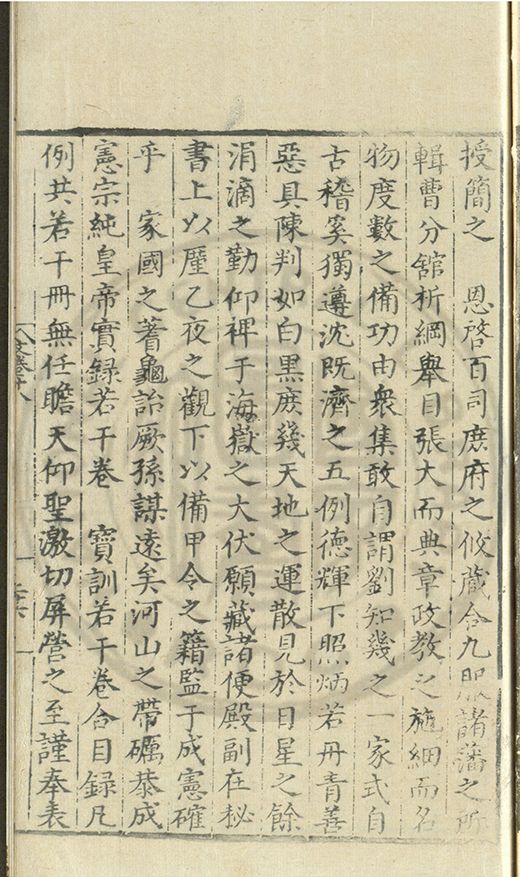 授簡之 恩啓百司庶府之攸蔵合九服諸藩之所
輯曹分舘析綱舉目張大而典章政教之施細而名
物度數之備功由衆集敢自謂劉知幾之一家式自
古稽奚獨遵沈既濟之五例德輝下照炳若丹青善
惡具陳判如白黒庶幾天地之運散見於日星之餘
涓滴之勤仰裨于海嶽之大伏願藏諸便殿副在秘
書上以塵乙夜之觀下以備甲令之籍監于成憲確
乎 家國之蓍龜詒厥孫謀遠矣河山之帶礪恭成
憲宗純皇帝實録若干卷 寶訓若干卷合目録凡
例共若干冊無任瞻天仰聖激切屏營之至謹奉表